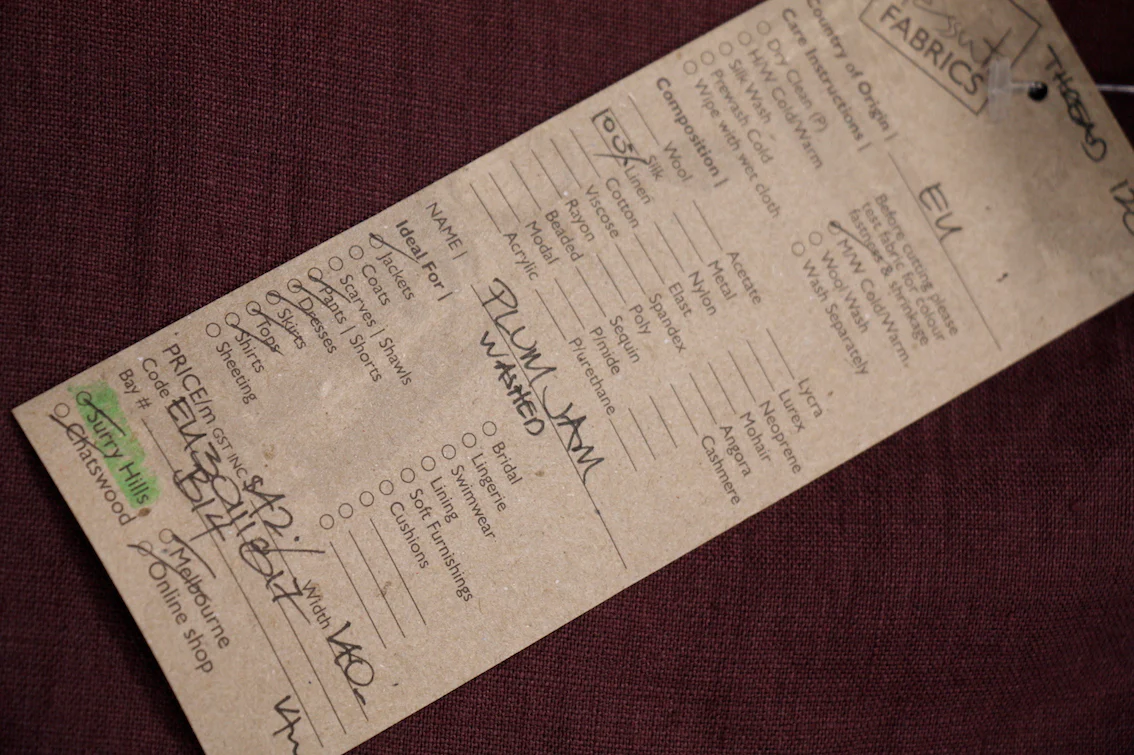 THREAD
FABRICS
Country of Origin | EU
Care Instructions |
Dry Clean (P)
H/W Cold/Warm
Silk Wash
Prewash Cold
Wipe with wet cloth
Before cutting please
test fabric for colour
fastness & shrinkage
M/W Cold/Warm.
Wool Wash
Wash Separately
Composition |
Wool
Silk
Linen
Cotton
Viscose
Rayon
Beaded
Modal
Acrylic
Acetate
Metal
Nylon
Elast
Spandex
Poly
Sequin
P/mide
P/urethane
Lycra
Lurex
Neoprene
Mohair
Angora
Cashmere
NAME | PLUM JAM
WASHED
Ideal For |
Jackets
Coats
Scarves | Shawls
Pants | Shorts
Dresses
Skirts
Tops
Shirts
Sheeting
Bridal
Lingerie
Swimwear
Lining
Soft Furnishings
Cushions
PRICE/m GST INC $42 Width 140
Code
Bay # B14
Surry Hills
Chatswood
Melbourne
Online shop